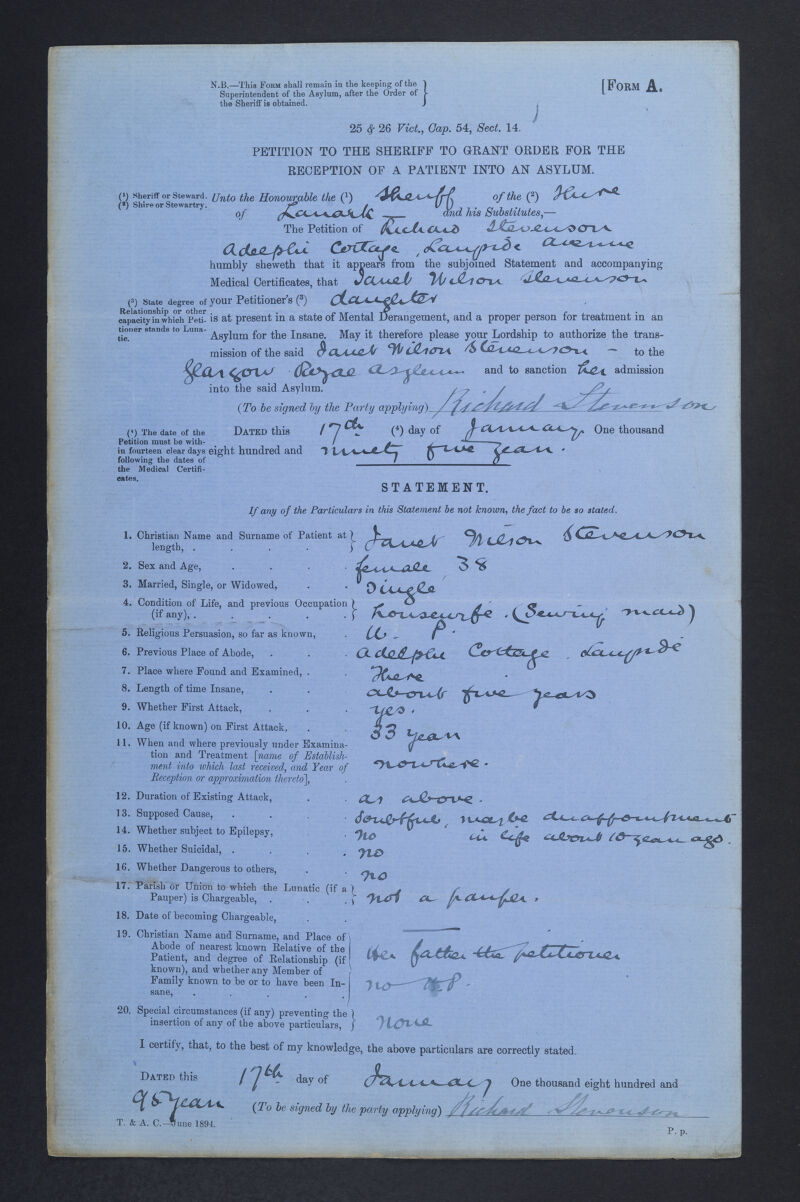 N.B.—This Form shall remain in the keeping of the
Superintendent of the Asylum, after the Order of
the Sheriff is obtained.
[Form A.
25 & 26 Vict., Cap. 54, Sect. 14.
PETITION TO THE SHERIFF TO GRANT ORDER FOR THE
RECEPTION OF A PATIENT INTO AN ASYLUM.
(1) Sheriff or Steward. Unto the Honourable the (1) Sheriff of the (2)
(2) Shire or Stewartry. of Lanark — and his Substitutes,—
The Petition of Richard Stevenson
Adelphi Cottage, Langside Avenue
humbly sheweth that it appears from the subjoined Statement and accompanying
Medical Certificates, that Janet Wilson Stevenson
(3) State degree of Relationship or other capacity in which Petitioner stands to Lunatic.
your Petitioner's (3) daughter
is at present in a state of Mental Derangement, and a proper person for treatment in an
Asylum for the Insane. May it therefore please your Lordship to authorize the trans-
mission of the said Janet Wilson Stevenson — to the
Glasgow Royal Asylum and to sanction her admission
into the said Asylum.
(To be signed by the Party applying) Richard Stevenson
(4) The date of the Petition must be within fourteen clear days following the dates of the Medical Certificates.
Dated this 17th (4) day of January. One thousand
eight hundred and ninety five year.
STATEMENT.
If any of the Particulars in this Statement be not known, the fact to be so stated.
1. Christian Name and Surname of Patient at length, . Janet Wilson Stevenson
2. Sex and Age, female 38
3. Married, Single, or Widowed, Single
4. Condition of Life, and previous Occupation (if any), . housewife. (Sewing maid)
5. Religious Persuasion, so far as known, U. P.
6. Previous Place of Abode, Adelphi Cottage. Langside
7. Place where Found and Examined, . There
8. Length of time Insane, about five years
9. Whether First Attack, yes.
10. Age (if known) on First Attack, 33 years
11. When and where previously under Examina-
tion and Treatment [name of Establish-
ment into which last received, and Year of
Reception or approximation thereto], nowhere.
12. Duration of Existing Attack, as above.
13. Supposed Cause, doubtful, may be disappointment
in life about 10 years ago.
14. Whether subject to Epilepsy, no
15. Whether Suicidal, . no
16. Whether Dangerous to others, no
17. Parish or Union to which the Lunatic (if a
Pauper) is Chargeable, . not a pauper.
18. Date of becoming Chargeable, —
19. Christian Name and Surname, and Place of
Abode of nearest known Relative of the
Patient, and degree of Relationship (if
known), and whether any Member of
Family known to be or to have been In-
sane, her father the petitioner
no
20. Special circumstances (if any) preventing the
insertion of any of the above particulars, None
I certify, that, to the best of my knowledge, the above particulars are correctly stated.
Dated this 17th day of January One thousand eight hundred and
95 year (To be signed by the party applying) Richard Stevenson
T. & A. C.—June 1894.
P. p.